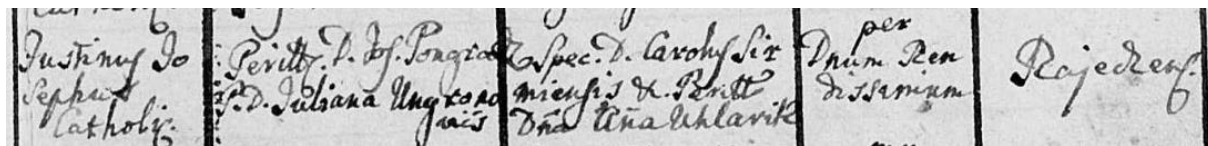 Justinus Jo
sephus
Catholic.
Perill. D. Jos. Pongrátz
P. D. Juliana Ungrono
viis
Spec. D. Carolus Sir
miensis & Perill
Dña Aña Uhlarik
per
Dnum Ren
dissimum
Rajeczens.